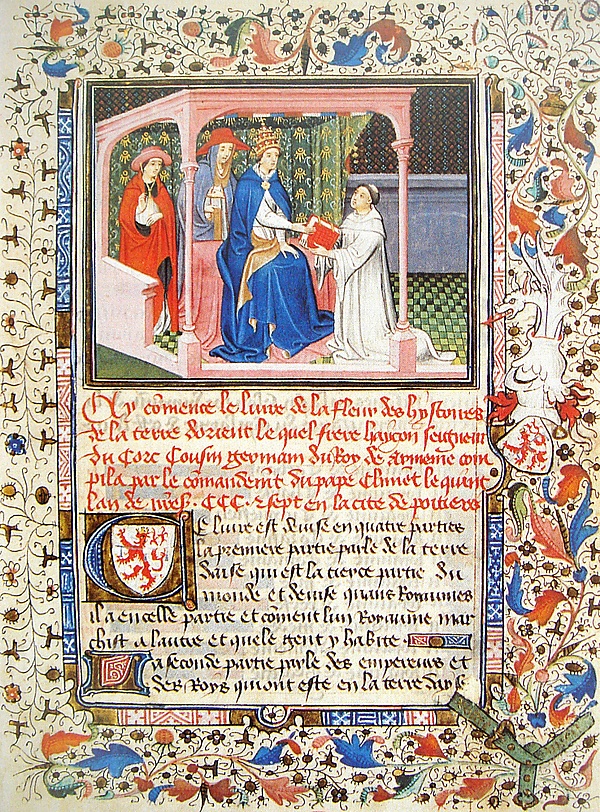 Cy cõmence le liure de la fleur des hystoires
de la terre dorient le quel frere haycon seigneur
du Corc Cousin germain du Roy de armenie com
pila par le comandemẽt du pape Climẽt le quint
lan de CCC. sept en la cite de poitiers
Ce liure est deuise en quatre parties
la premiere partie parle de la terre
daise qui est la tierce partie du
monde et deuise quans Royaumes
il a en celle partie et cõment lun Royaume mar
chist a lautre et quele gent y habite
La seconde partie parle des empereurs et
des Roys qui ont este en la terre dayse